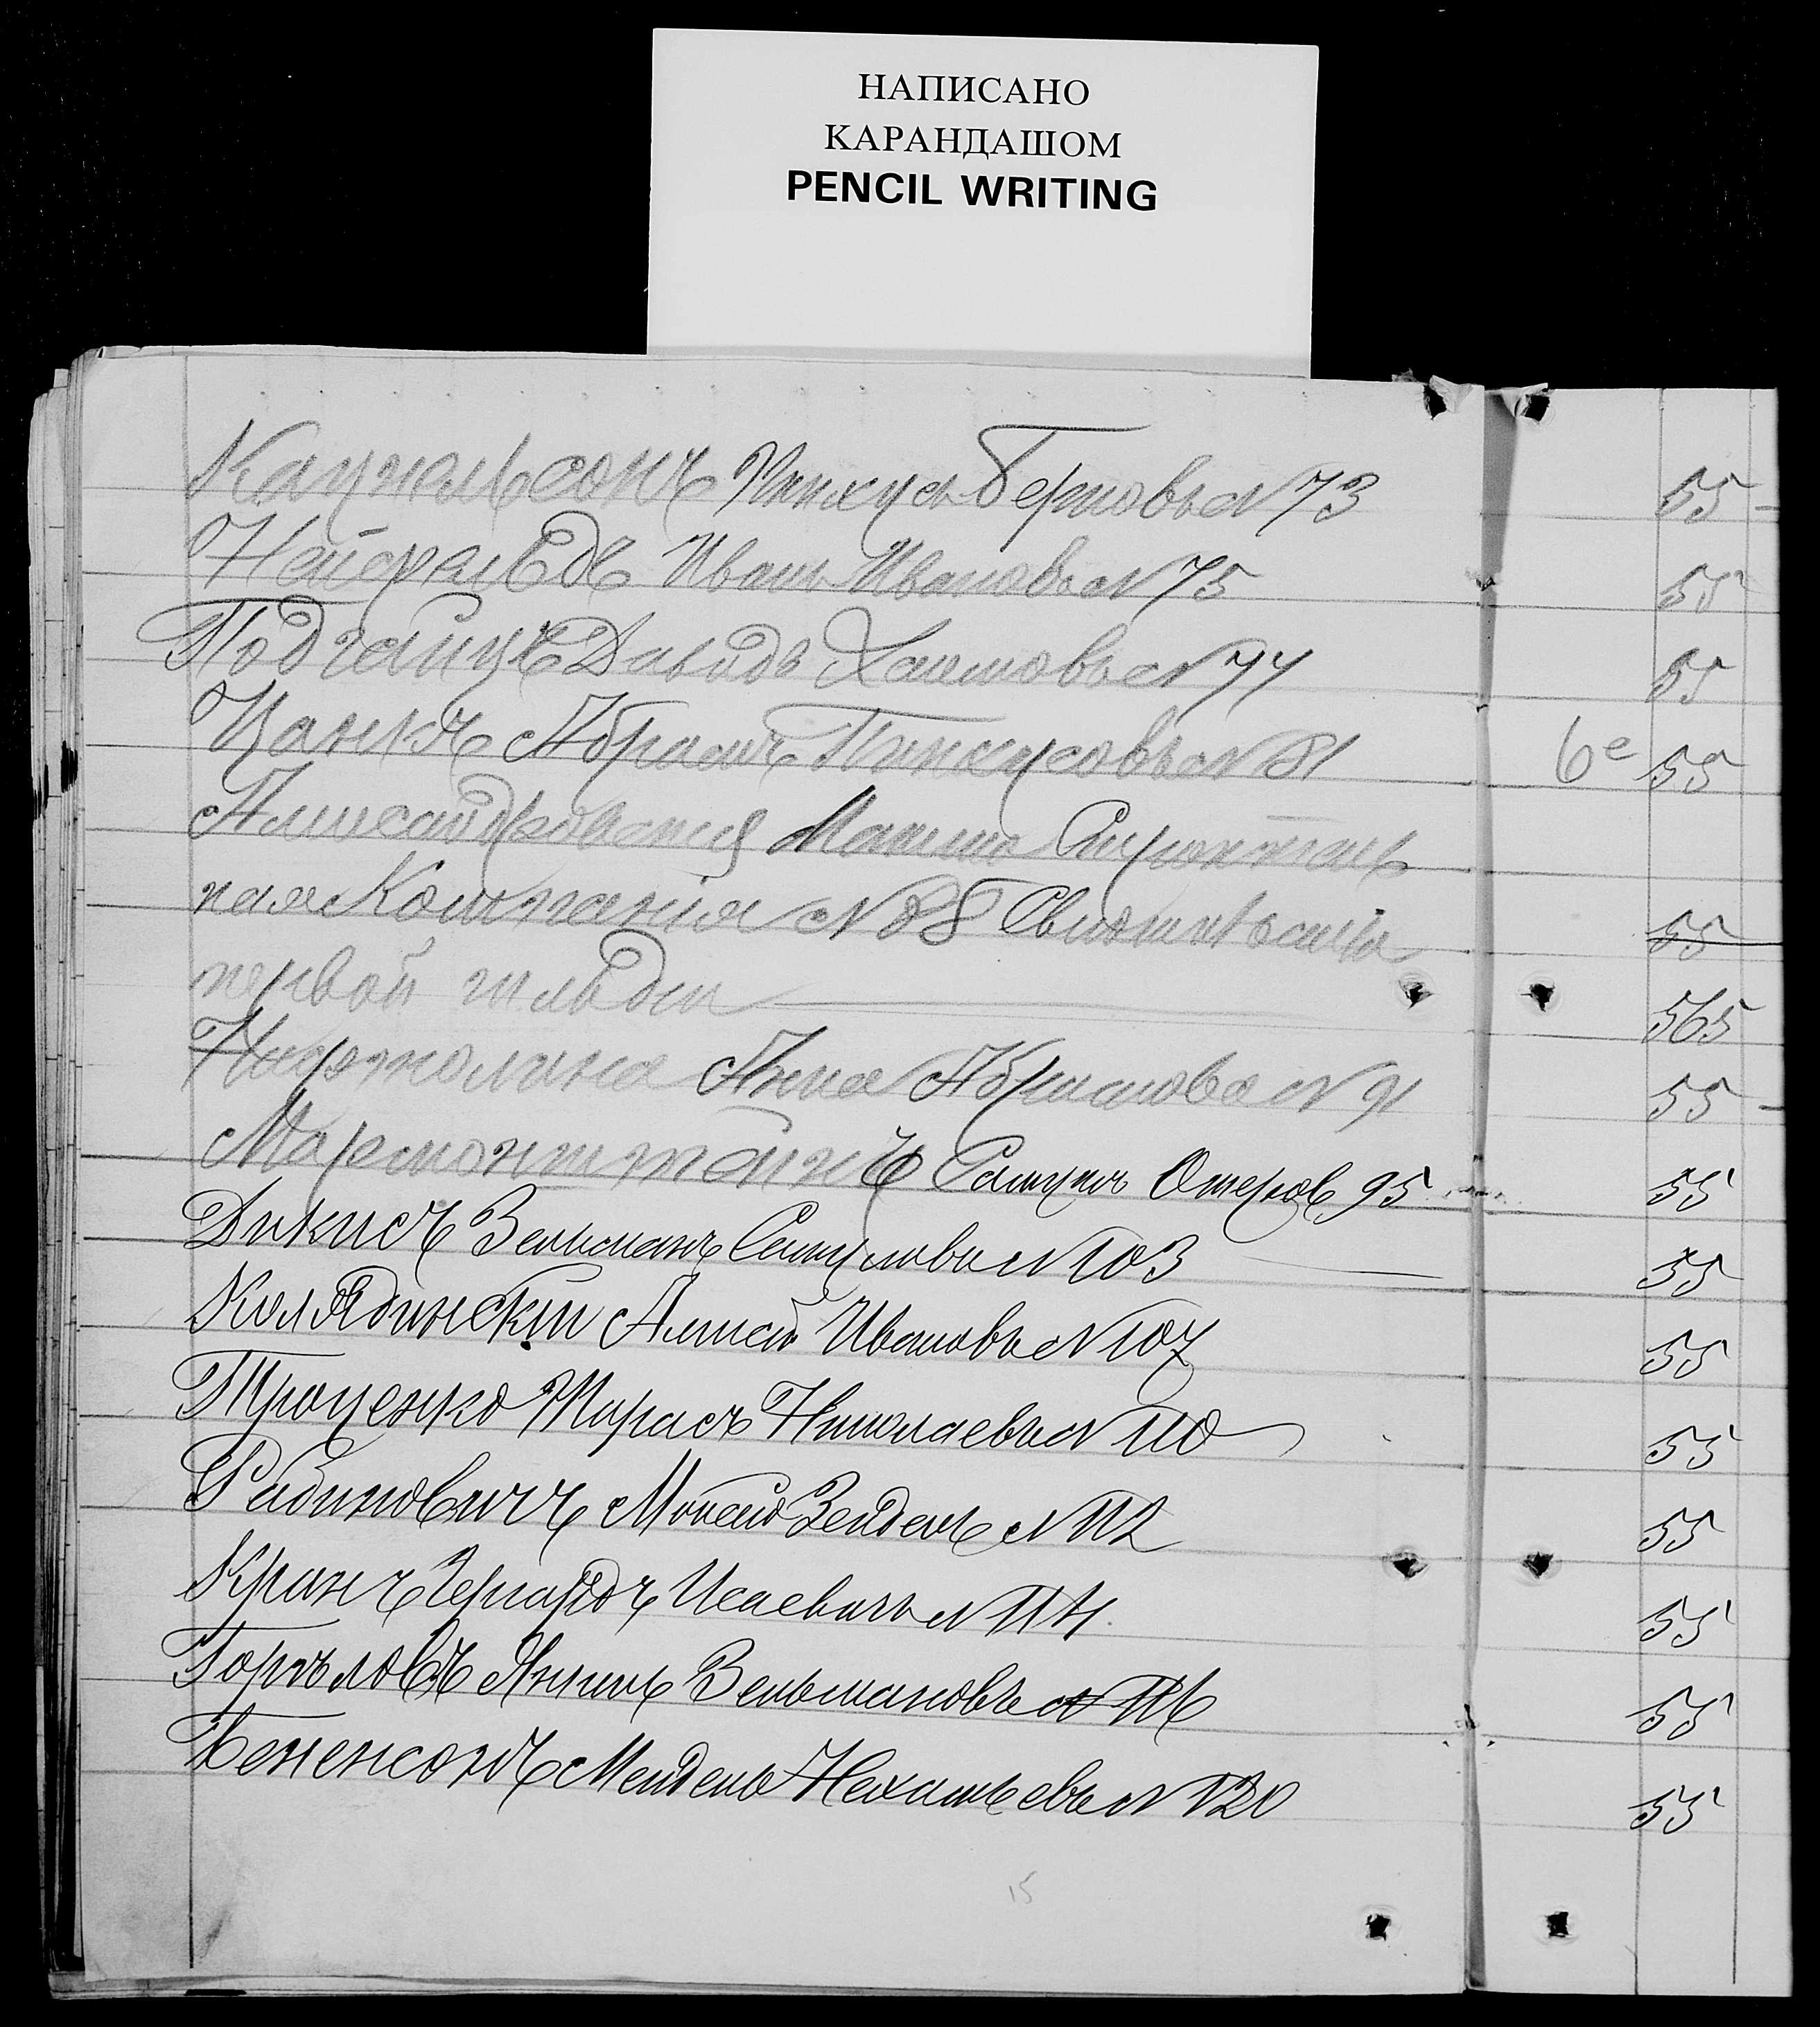 НАПИСАНО
КАРАНДАШОМ
PENCIL WRITING
Кацнельсонъ Пинхусъ Берковъ № 73 55 -
Нейфельдъ Иванъ Ивановъ № 75 55
Подгаецъ Давидъ Хаимовъ № 77 55
Цанкъ Абрамъ Пинхусовъ № 81 6е 55
Александровская Мании
ная Компанія № 88 Свидѣтельство 55
первой гильдіи 565
Анна Абрамова № 91 55 -
Мармонштейнъ Самуилъ 95 55
Дикисъ Зельманъ Самуиловъ № 103 55
Колядинскій Алексѣй Ивановъ № 107 55
Троценко Тарасъ Николаевъ № 110 55
Рабиновичъ Мовша Зейделъ № 112 55
Кранъ Герардъ Исаевичъ № 114 55
Зельмановъ № 116 55
Бененсонъ Мендель № 120 55
15